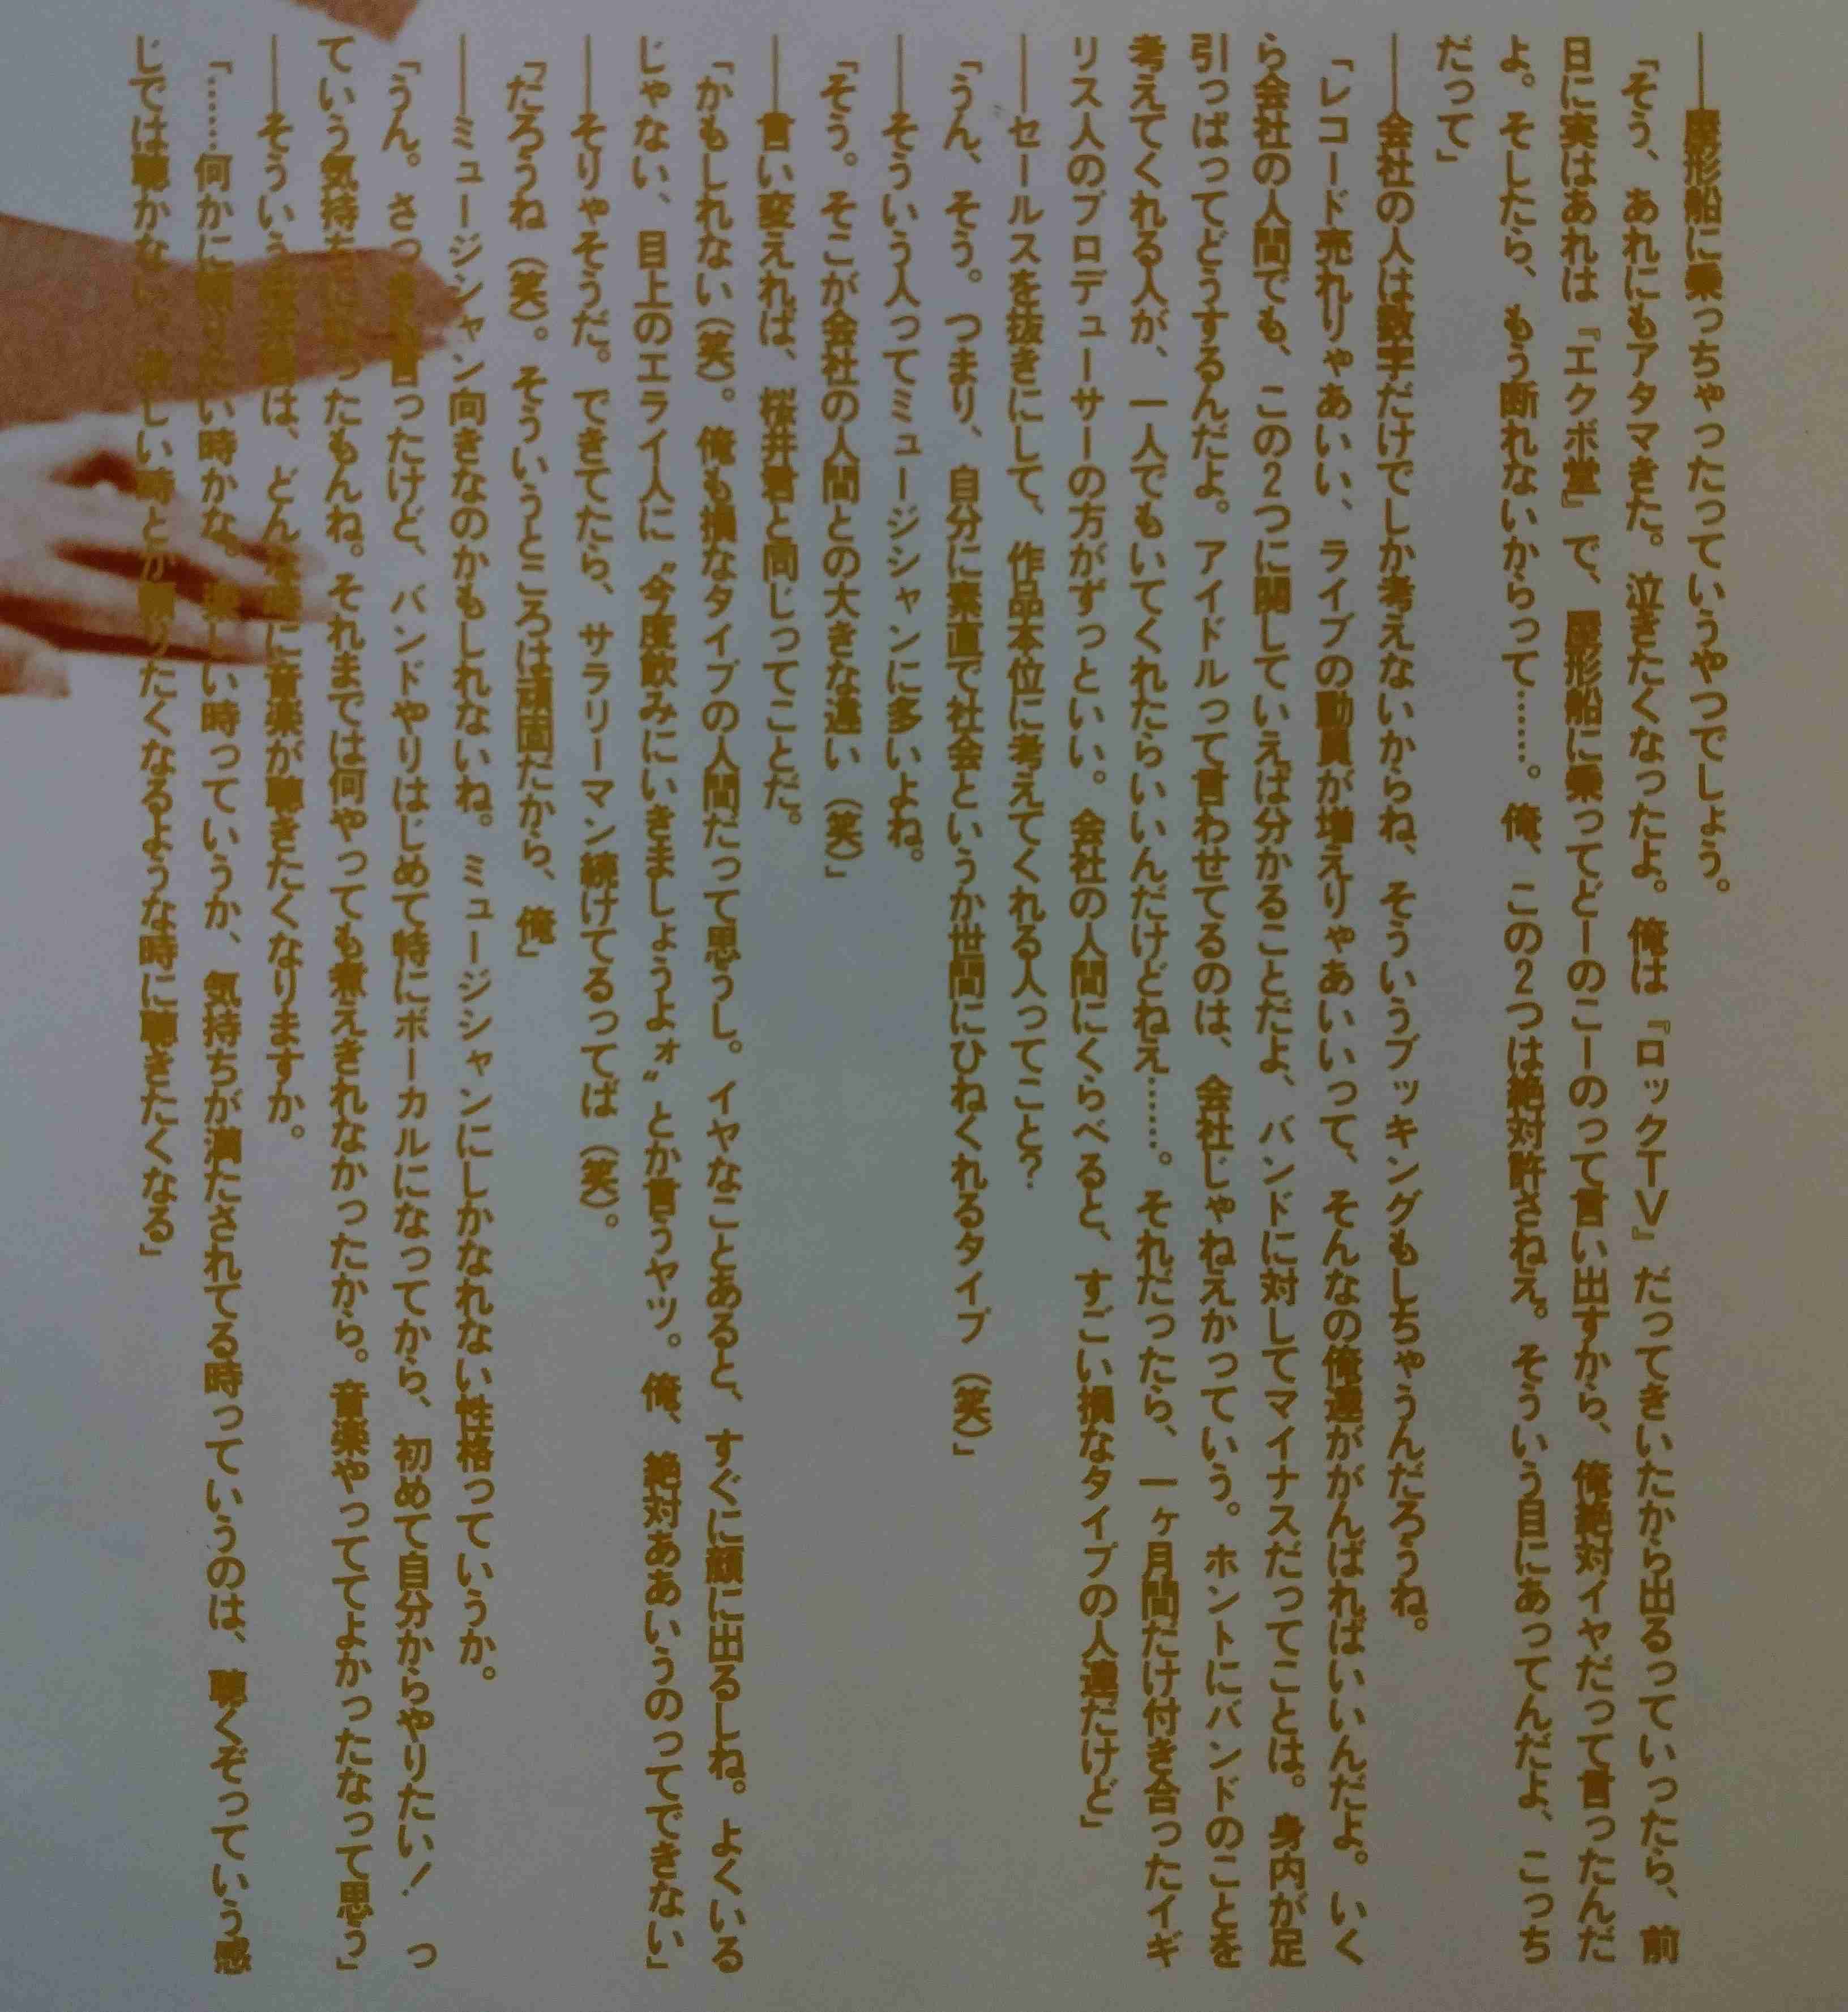 ――屋形船に乗っちゃったっていうやつでしょう。
「そう、あれにもアタマきた。泣きたくなったよ。俺は『ロックTV』だってきいたから出るっていったら、前
日に実はあれは『エクボ堂』で、屋形船に乗ってどーのこーのって言い出すから、俺絶対イヤだって言ったんだ
よ。そしたら、もう断れないからって……。俺、この2つは絶対許さねぇ。そういう目にあってんだよ、こっち
だって」
――会社の人は数字だけでしか考えないからね、そういうブッキングもしちゃうんだろうね。
「レコード売れりゃあいい、ライブの動員が増えりゃあいいって、そんなの俺達ががんばればいいんだよ。いく
ら会社の人間でも、この2つに関していえば分かることだよ、バンドに対してマイナスだってことは。身内が足
引っぱってどうするんだよ。アイドルって言わせてるのは、会社じゃねえかっていう。ホントにバンドのことを
考えてくれる人が、一人でもいてくれたらいいんだけどねえ……。それだったら、一ヶ月間だけ付き合ったイギ
リス人のプロデューサーの方がずっといい。会社の人間にくらべると、すごい損なタイプの人達だけど」
――セールスを抜きにして、作品本位に考えてくれる人ってこと?
「うん、そう。つまり、自分に素直で社会というか世間にひねくれるタイプ（笑）」
――そういう人ってミュージシャンに多いよね。
「そう。そこが会社の人間との大きな違い（笑）」
――言い変えれば、桜井君と同じってことだ。
「かもしれない（笑）。俺も損なタイプの人間だって思うし。イヤなことあると、すぐに顔に出るしね。よくいる
じゃない、目上のエライ人に〝今度飲みにいきましょうよォ〟とか言うヤツ。俺、絶対ああいうのってできない」
――そりゃそうだ。できてたら、サラリーマン続けてるってば（笑）。
「だろうね（笑）。そういうところは頑固だから、俺」
――ミュージシャン向きなのかもしれないね。ミュージシャンにしかなれない性格っていうか。
「うん。さっきも言ったけど、バンドやりはじめて特にボーカルになってから、初めて自分からやりたい！　っ
ていう気持ちになったもんね。それまでは何やっても煮えきれなかったから。音楽やっててよかったなって思う」
――そういうは、どんな時に音楽が聴きたくなりますか。
「……何かにたい時かな。しい時っていうか、気持ちが満たされてる時っていうのは、聴くぞっていう感
じでは聴かない。しい時とかりたくなるような時に聴きたくなる」